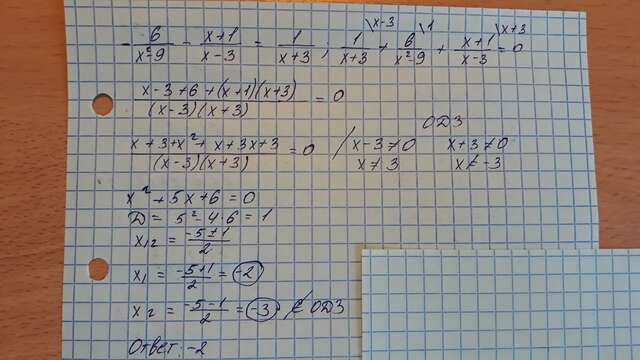 - 6/(x²-9) - (x+1)/(x-3) = 1/(x+3) ; 1/(x+3) \x-3 + 6/(x²-9) \1 + (x+1)/(x-3) \x+3 = 0
(x-3+6+(x+1)(x+3))/((x-3)(x+3)) = 0
ОДЗ
(x+3+x²+x+3x+3)/((x-3)(x+3)) = 0 / x-3≠0 x+3≠0
x≠3 x≠-3
x²+5x+6=0
D = 5²-4·6 = 1
x₁,₂ = (-5±1)/2
x₁ = (-5+1)/2 = -2
x₂ = (-5-1)/2 = -3 ∉ ОДЗ
Ответ: -2